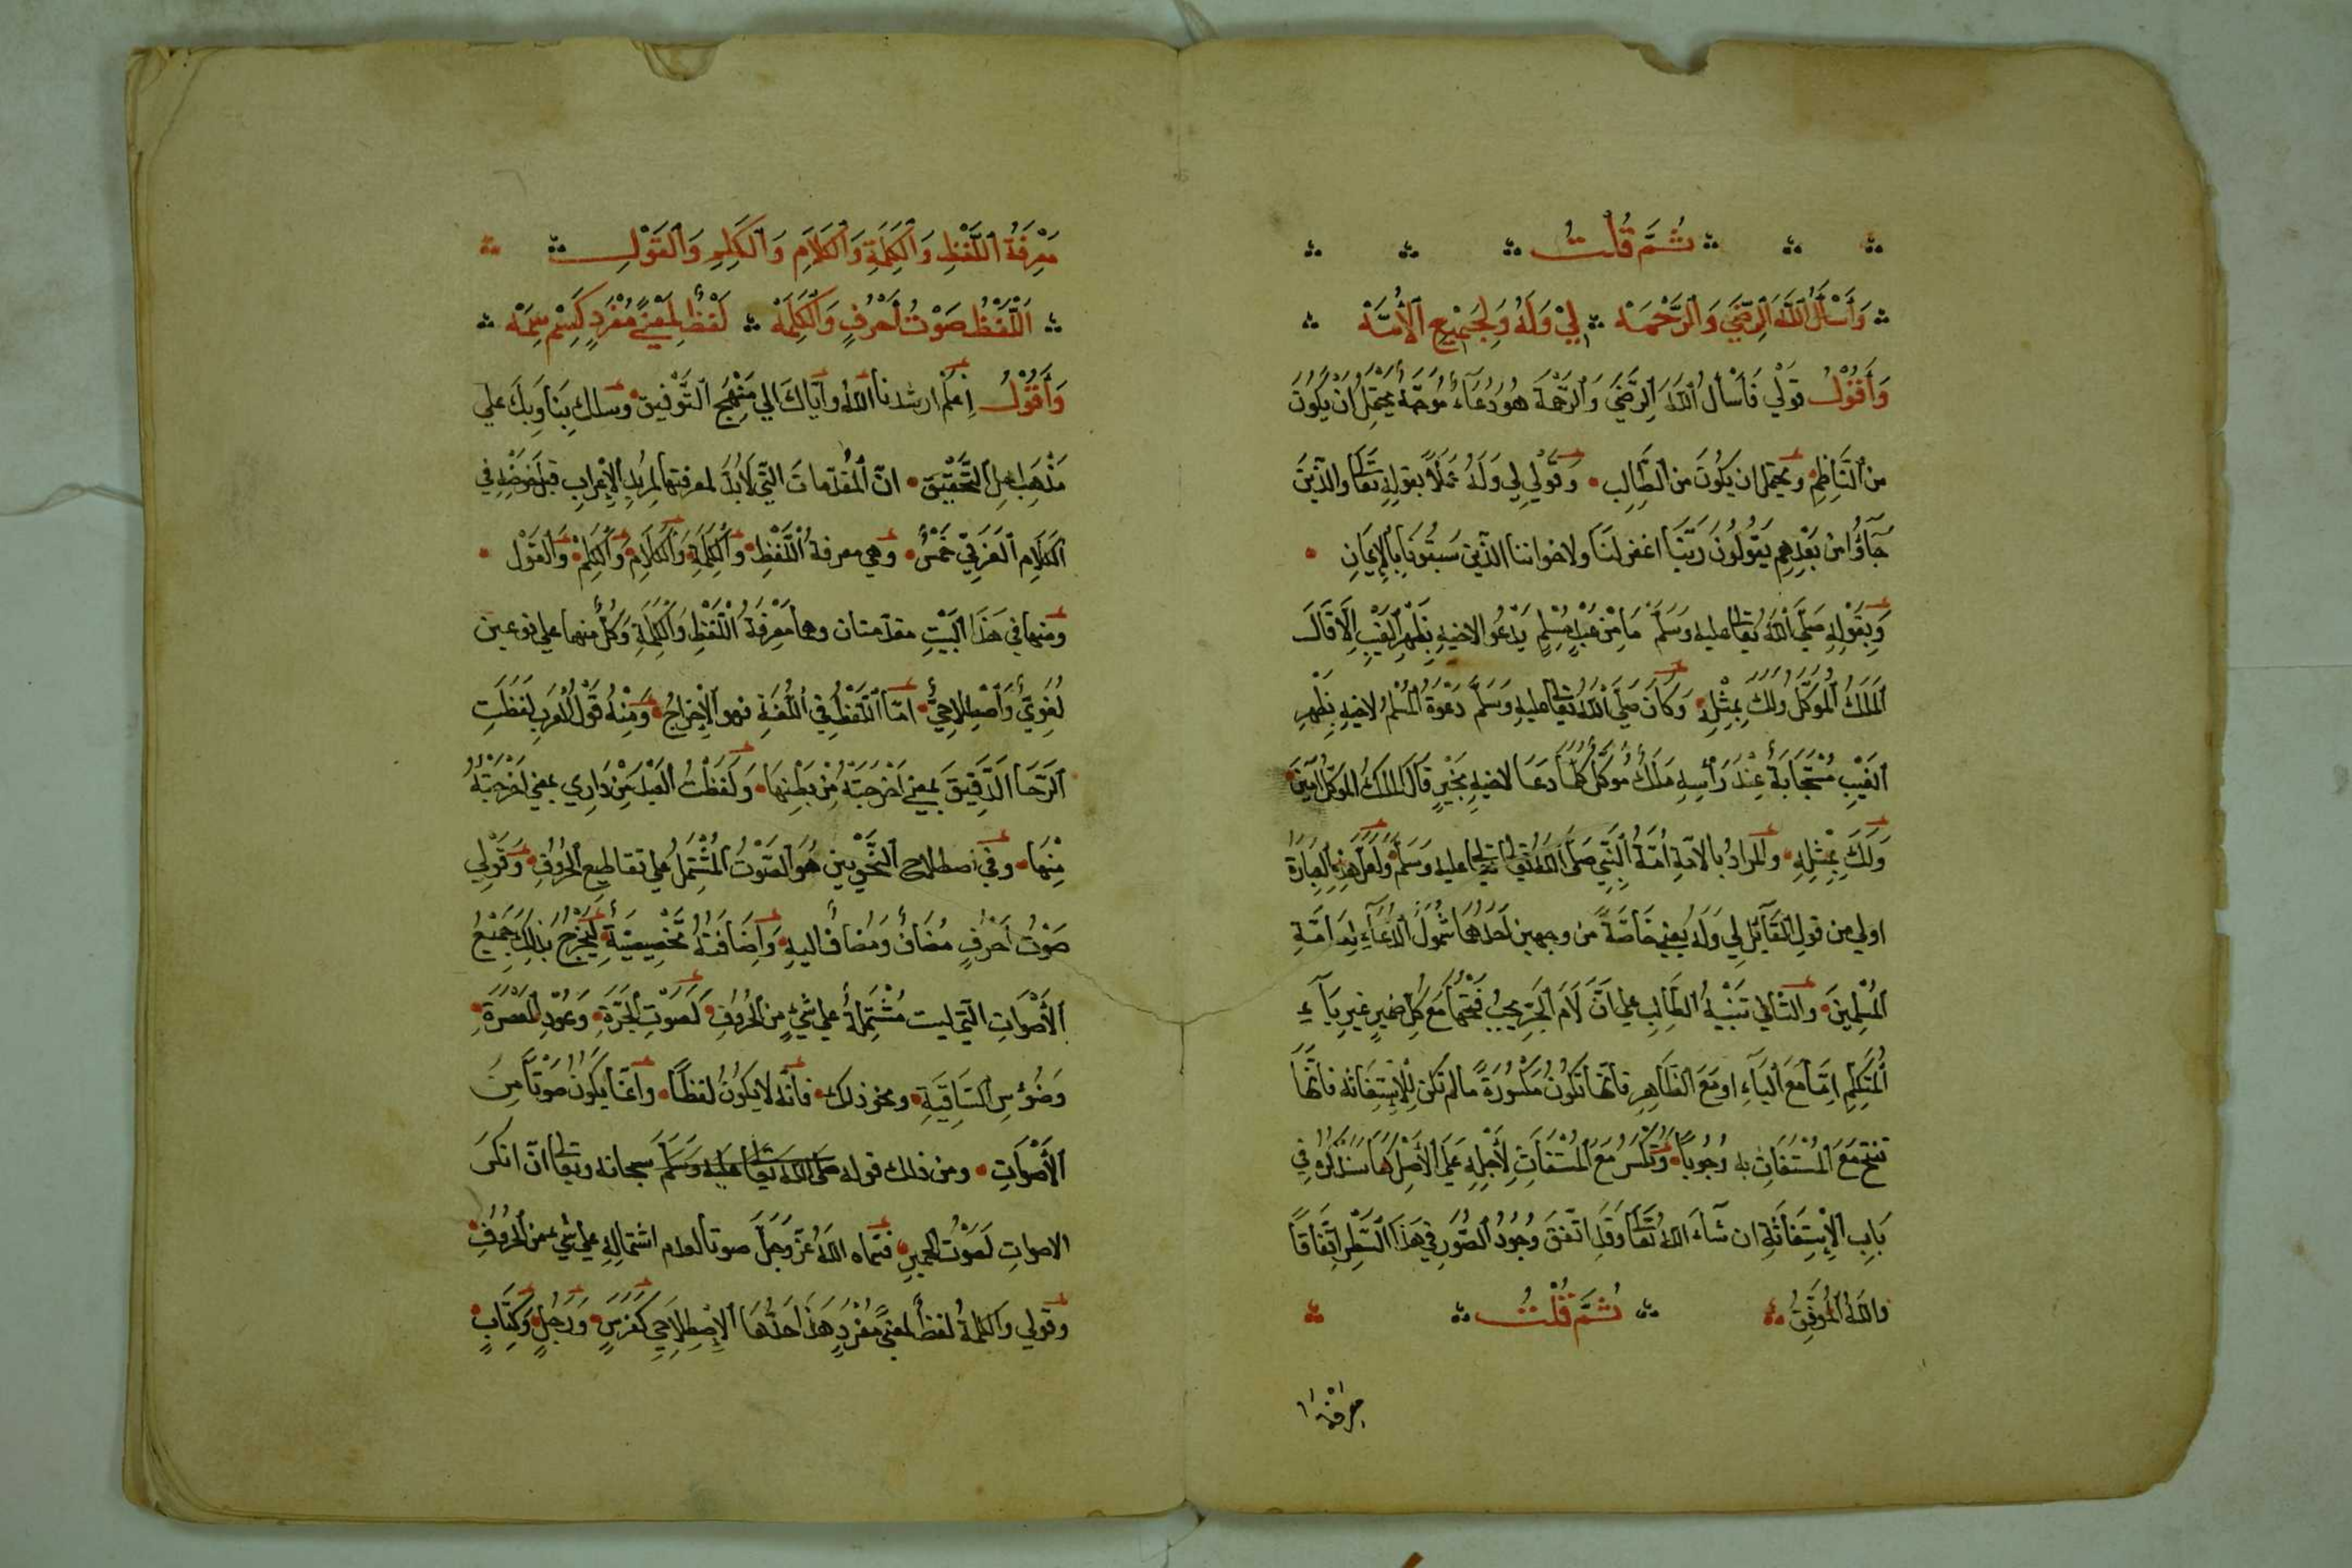 ثُمَّ قُلْتُ
وَأَسْأَلُ اللّٰهَ الرِّضَى وَالرَّحْمَهْ لِيْ وَلَهُ وَلِجَمِيْعِ الْأُمَّهْ
وَأَقُوْلُ قولي فَأَسْأَلُ اللّٰهَ الرِّضَى وَالرَّحْمَةَ هُوَ دُعَاءٌ مُوَجَّهٌ يحتمل ان يَكُونَ
من النَّاظِمِ ويحتمل ان يكُونَ من الطَّالِبِ وَقَوْلِي لِي وَلَهُ عَمَلاً بقولِهِ تعَالى والذين
جَآؤُا من بَعْدِهِم يَقُولُونَ رَبَّنَا اغفر لنَا ولاخواننا الذين سَبَقُونَا بِالْإِيمَانِ
وَبِقَوْلِهِ صَلَّى اللّٰهُ تعَالى عليه وَسَلَّمَ مَا مِنْ عَبْدٍ مُسْلِمٍ يَدْعُو لاخيهِ بِظَهْرِ الْغَيْبِ إِلَّا قَالَ
الْمَلَكُ الْمُوَكَّلُ وَلَكَ بِمِثْلِهِ وَكَانَ صَلَّى اللّٰهُ تعَالى عليهِ وَسَلَّمَ دَعْوَةُ الْمُسْلِمُ لاخيهِ بِظَهْرِ
الغَيْبِ مُسْتَجَابَةٌ عِنْدَ رَأسِهِ مَلَكٌ مُوَكَّلٌ كُلَّمَا دعَا لاخيهِ بِخَيْرٍ قَالَ الْمَلَكُ الْمُوَكَّلُ آمِينَ
وَلَكَ بِمِثْلِهِ والمراد بالامّةِ اُمّةُ النَّبِيِّ صَلَّى اللّٰهُ تعَالى عليه وَسَلَّمَ وَلَعَلَّ هَذِهِ الْعِبَارَةَ
اولي من قولِ القَآئل لِي وَلَهُ يعني خَاصَّةً من وجهين اَحَدُهُمَا شُمُولُ الدُّعَآءِ لِعَامَّةِ
الْمُسْلِمِينَ والثاني تَنْبيهُ الطَّالِبِ على اَنَّ لَامَ الْجَرِّ يجبُ فَتْحُهَا مَعَ كُلِّ ضميرٍ غيرِ يَآءِ
الْمُتَكَلِّمِ اِمَّا مَعَ اليَآءِ او مَعَ الظَّاهِرِ فانها تكُونُ مَكْسُورَةً ما لم تكن لِلاسْتِغَاثه فانّها
تفتح مَعَ الْمُسْتَغَاثِ به وُجُوبًا وَتُكْسَرُ مَعَ المُسْتَغَاثِ لِأَجْلِهِ عَلَى الْأَصْلِ كَمَا سَنَذْكُرُهُ فِي
بَابِ الْإِسْتِغَاثَةِ ان شَآءَ اللّٰهُ تعَالى وَقَد اتَّفَقَ وُجُودُ الصُّوَرِ فِي هَذَا الشَّطْرِ اتِّفَاقًا
واللّٰهُ الْمُوَفِّقُ ثُمَّ قُلْتُ
معرفة
مَعْرِفَةُ اللَّفْظِ وَالْكِلْمَةِ وَالْكَلَامِ وَالْكَلِمِ وَالْقَوْلِ
اللَّفْظُ صَوْتُ أَحْرُفٍ وَالْكَلِمَهْ لَفْظٌ لِمَعْنًى مُفْرَدٍ كَسْم سِمَهْ
وَأَقُوْلُ اِعلَمْ ارشدنا اللّٰهُ وايّاكَ الي مَنْهَجِ التَّوْفيق وسلك بِنَا وَبِكَ علي
مَذْهَبِ اهل التَّحْقِيْقِ انّ الْمُقَدِّمَاتَ التي لَابُدَّ لمعرفتها لِمُريدِ الْإِعْرابِ قبل خَوضِهِ في
الكَلَامِ الْعَرَبِيِّ خَمْسٌ وهي معرفةُ اللَّفْظِ وَالْكِلْمَةِ وَالْكَلَامِ وَالْكَلِمْ وَالقَوْل
ومنها في هَذَا البَيْتِ مقدّمتان وهما مَعْرِفَةُ اللَّفْظِ وَالْكِلْمَةِ وَكُلٌّ منهما علي نوعين
لُغَوِيٌّ وَاصْطِلَاحِيٌّ امّا اللَّفْظُ فِي اللُّغَةِ فهو الْإِخْرَاجُ وَمِنْهُ قَوْلُ الْعَرَبِ لَفَظَتِ
الرَّحَا الدَّقِيقَ بمعنى اَخْرَجَتْهُ مِنْ بَطْنِهَا وَلَفَظْتُ العَبْدَ مِنْ دَارِي بمعني اَخْرَجْتُهُ
مِنْهَا وفي اصطلاح النَّحْوِيين هُوَ الصَّوْتُ الْمُشْتَمِلُ على تقاطيعِ الحُرُوفِ وَقَوْلِي
صَوْتُ اَحْرُفٍ مُضَافٌ وَمُضافٌ اليهِ وَاِضَافَتُهُ تَخْصِيصِيَّةٌ ليَخْرُجَ بذلك جَمِيْعُ
الْأَصْوَاتِ التي ليست مُشْتَمِلَةً على شيْءٍ من الحُرُوفِ كَصَوْتِ الْجَرَّةِ وَعُوْدِ الْمَعْصَرَةِ
وَضَوْءِ سِ السَّاقِيَةِ ونحو ذلك فانّه لا يكُونُ لفظًا وانَّما يكون صَوْتًا مِنَ
الأَصْوَاتِ ومن ذلك قوله صلى اللّٰه تعالى عليه وسلم سبحانه وتعَالى انّ انكَرَ
الاصواتِ لَصَوْتُ الحميرِ فسَمّاه اللّٰهُ عَزَّ وَجَلَّ صوتًا لعدم اشتمالِهِ علي شيء من الحُرُوفِ
وقولي والكلمةُ لفظٌ لمعنًى مُفْرَدٍ هَذَا حَدُّهَا الْإِصْطِلَاحِي كَفَرَسٍ وَرَجُلٍ وَكِتَابٍ